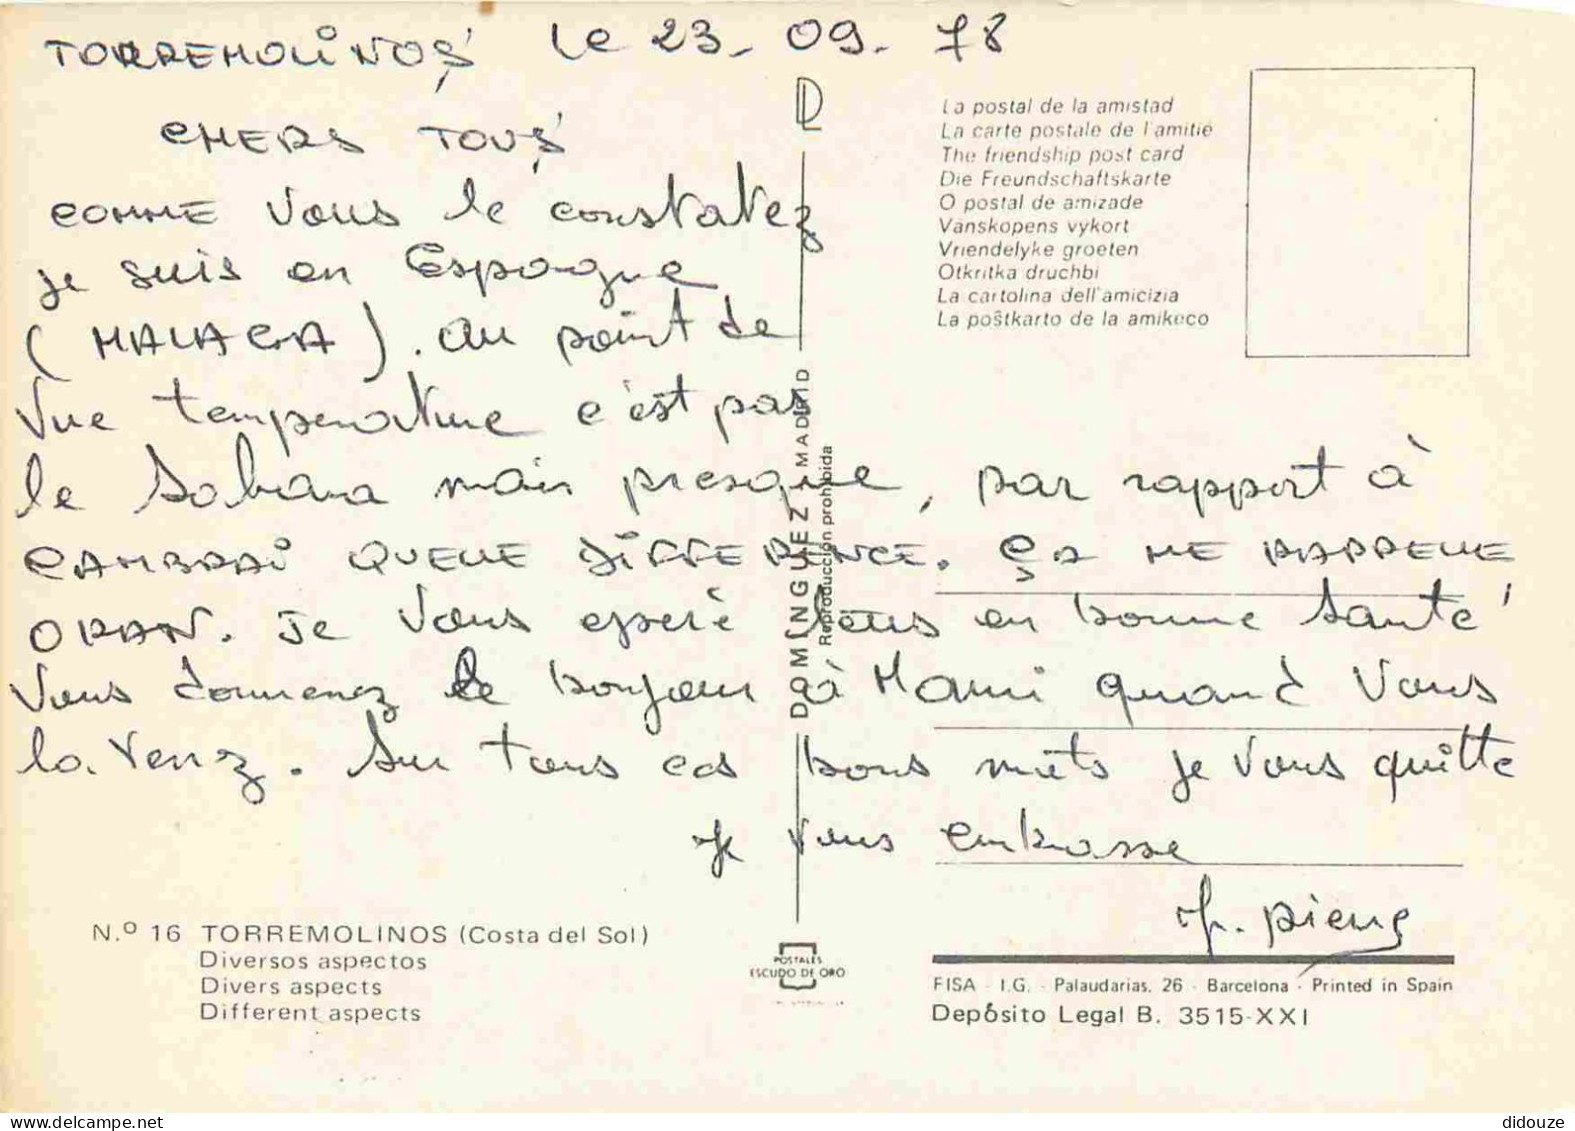 TORREMOLINOS le 23-09-78
CHERS TOUS
COMME Vous le constatez
je suis en Espagne
(MALAGA). au point de
Vue température c'est pas
le Sahara mais presque, par rapport à
CAMBRAI QUELLE DIFFERENCE. ça ME RAPPELLE
ORAN. Je Vous esperè tous en bonne Santé
Vous donnerez le bonjour à Mami quand Vous
la verrez. Sur tous ces bons mots je Vous quitte
Je vous embrasse
J. Pierre
La postal de la amistad
La carte postale de l'amitié
The friendship post card
Die Freundschaftskarte
O postal de amizade
Vanskopens vykort
Vriendelyke groeten
Otkritka druchbi
La cartolina dell'amicizia
La poŝtkarto de la amikeco
DOMINGUEZ - MADRID
Reproducción prohibida
N.º 16 TORREMOLINOS (Costa del Sol)
Diversos aspectos
Divers aspects
Different aspects
POSTALES
ESCUDO DE ORO
FISA - I.G. - Palaudarias, 26 - Barcelona - Printed in Spain
Depósito Legal B. 3515-XXI
didouze